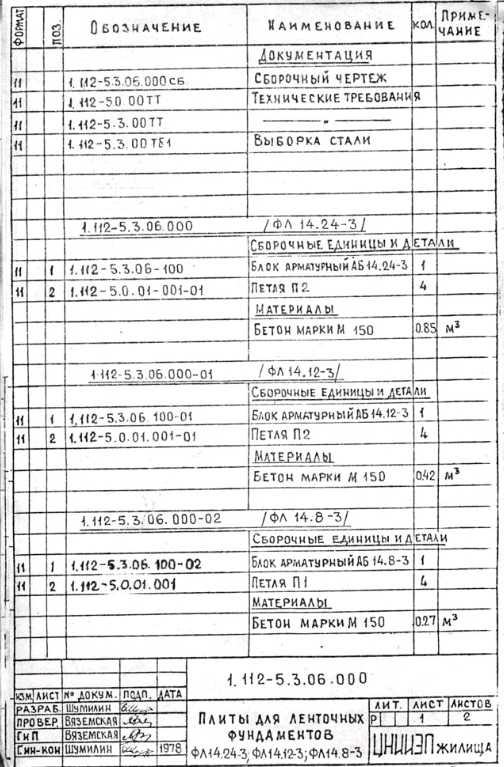 ФОРМАТ ПОЗ. ОБОЗНАЧЕНИЕ НАИМЕНОВАНИЕ КОЛ. ПРИМЕ-
ЧАНИЕ
ДОКУМЕНТАЦИЯ
11 1.112-5.3.06.000 СБ СБОРОЧНЫЙ ЧЕРТЕЖ
11 1.112-5.0.00ТТ ТЕХНИЧЕСКИЕ ТРЕБОВАНИЯ
11 1.112-5.3.00ТТ — " —
11 1.112-5.3.00ТБ1 ВЫБОРКА СТАЛИ
1.112-5.3.06.000 /ФЛ 14.24-3/
СБОРОЧНЫЕ ЕДИНИЦЫ И ДЕТАЛИ
11 1 1.112-5.3.06-100 БЛОК АРМАТУРНЫЙ АБ 14.24-3 1
11 2 1.112-5.0.01-001-01 ПЕТЛЯ П2 4
МАТЕРИАЛЫ
БЕТОН МАРКИ М 150 0.85 м³
1.112-5.3.06.000-01 /ФЛ 14.12-3/
СБОРОЧНЫЕ ЕДИНИЦЫ И ДЕТАЛИ
11 1 1.112-5.3.06.100-01 БЛОК АРМАТУРНЫЙ АБ 14.12-3 1
11 2 1.112-5.0.01.001-01 ПЕТЛЯ П2 4
МАТЕРИАЛЫ
БЕТОН МАРКИ М 150 0.42 м³
1.112-5.3.06.000-02 /ФЛ 14.8-3/
СБОРОЧНЫЕ ЕДИНИЦЫ И ДЕТАЛИ
11 1 1.112-5.3.06.100-02 БЛОК АРМАТУРНЫЙ АБ 14.8-3 1
11 2 1.112-5.0.01.001 ПЕТЛЯ П1 4
МАТЕРИАЛЫ
БЕТОН МАРКИ М 150 0.27 м³
1.112-5.3.06.000
ИЗМ. ЛИСТ № ДОКУМ. ПОДП. ДАТА
РАЗРАБ. ШУМИЛИН
ПРОВЕР. ВЯЗЕМСКАЯ
ГИП ВЯЗЕМСКАЯ
ГИН-КОН ШУМИЛИН 1978
ПЛИТЫ ДЛЯ ЛЕНТОЧНЫХ
ФУНДАМЕНТОВ
ФЛ14.24-3; ФЛ14.12-3; ФЛ14.8-3
ЛИТ. ЛИСТ ЛИСТОВ
Р 1 2
ЦНИИЭП ЖИЛИЩА